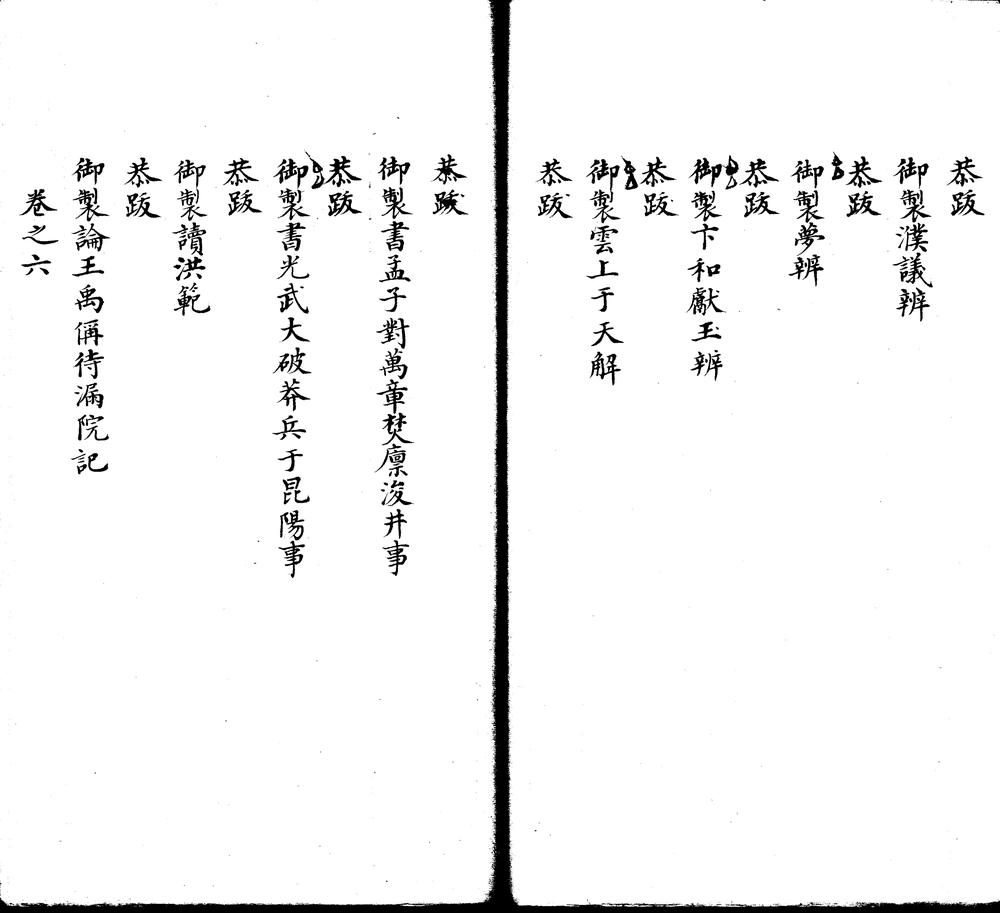 恭跋
御製濮議辨
恭跋
御製夢辨
恭跋
御製卞和獻玉辨
恭跋
御製雲上于天解
恭跋
恭跋
御製書孟子對萬章焚廩浚井事
恭跋
御製書光武大破莽兵于昆陽事
恭跋
御製讀洪範
恭跋
御製論王禹偁待漏院記
卷之六